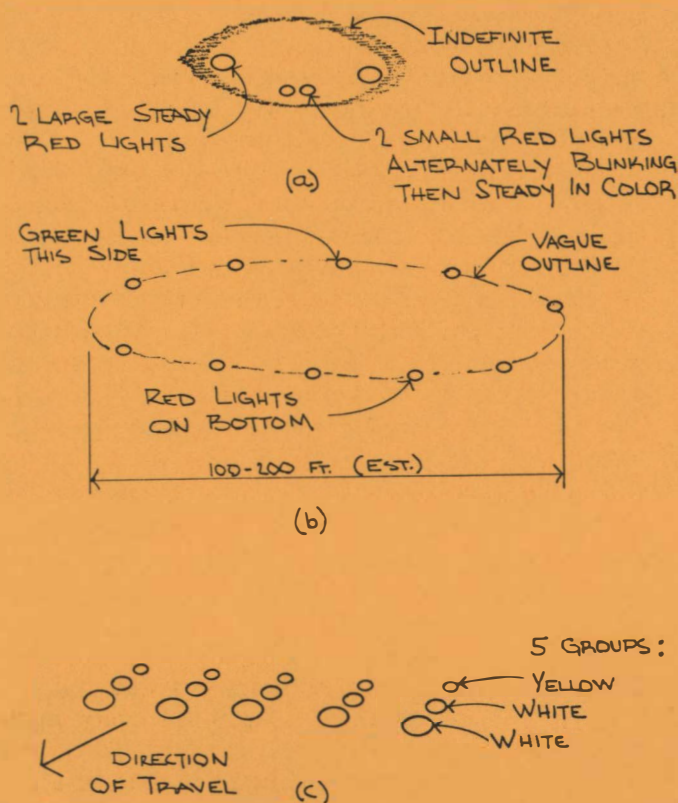 INDEFINITE
OUTLINE
2 LARGE STEADY
RED LIGHTS
2 SMALL RED LIGHTS
ALTERNATELY BLINKING
THEN STEADY IN COLOR
(a)
GREEN LIGHTS
THIS SIDE
VAGUE
OUTLINE
RED LIGHTS
ON BOTTOM
100-200 FT. (EST.)
(b)
5 GROUPS:
YELLOW
WHITE
WHITE
DIRECTION
OF TRAVEL
(c)